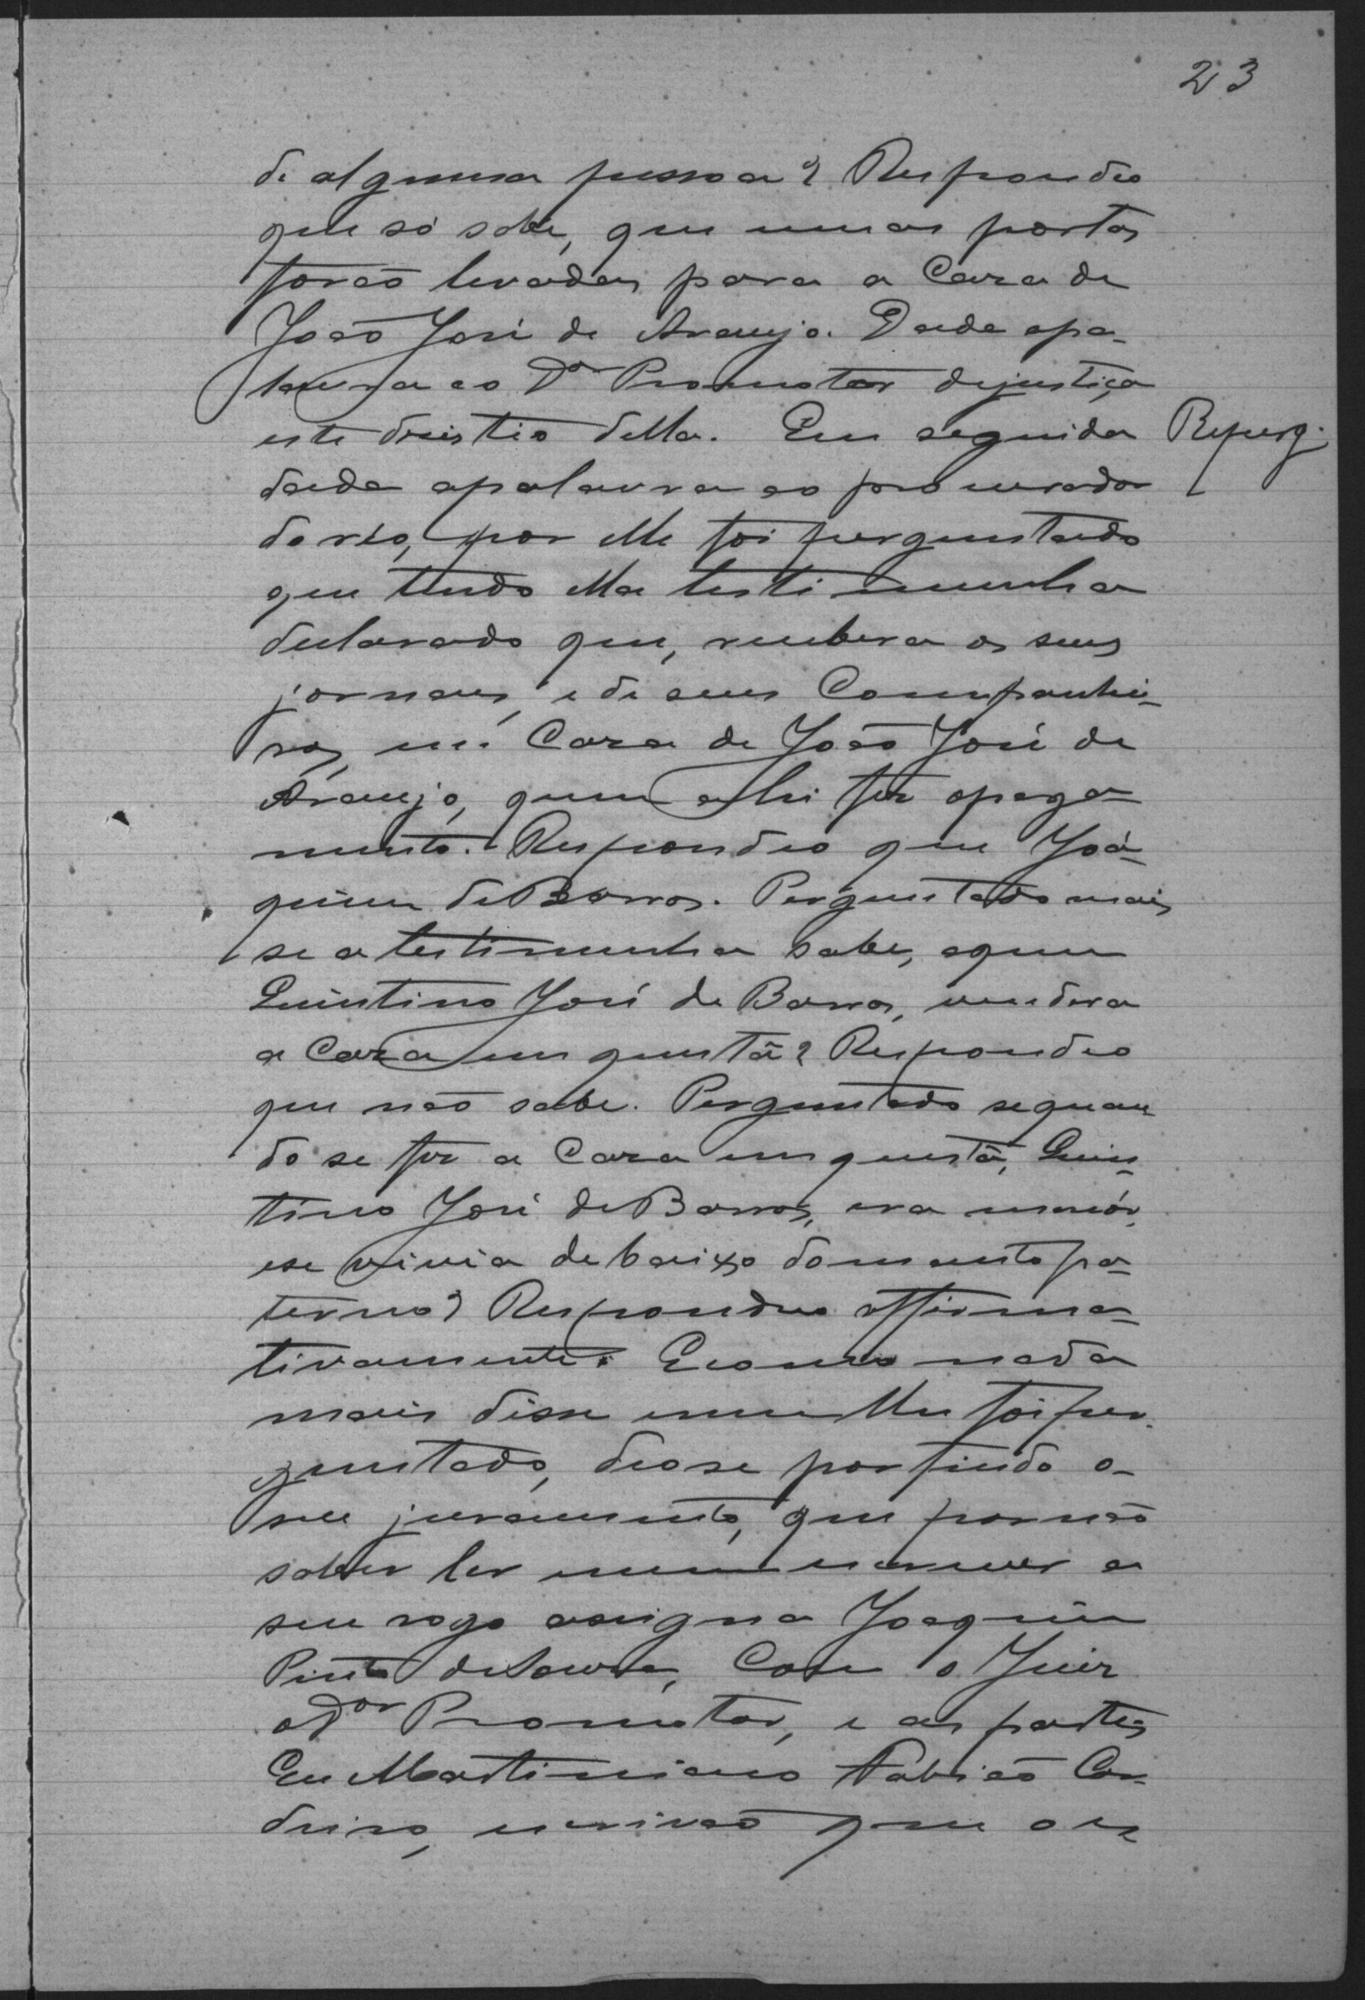 23
de alguma pessoa? Respondeo
que só sabe, que umas portas
forão levadas para a Caza de
João José de Araujo. Dada apa-
lavra ao Dor Promotor dejustiça
este desistio della. Em seguida
Reperg.
dada apalavra ao procurador
do réo, por elle foi perguntado
que tendo ella testimunha
declarado que, recebera os seus
jornaes, e de seus Companhei-
ros, em Caza de João José de
Araujo, quem alhi fez opaga-
mento. Respondeo que Joa-
quim de Barros. Perguntado mais
se a testimunha sabe, aquem
Quintino José de Barros, vendera
a Caza em questã? Respondeo
que não sabe. Perguntado se quan
do se fez a Caza em questã, Quin-
tino José de Barros, era maiór,
ese vivia de baixo domanto pa-
terno? Respondeo affirma-
tivamente. Ecomo nada
mais disse nem lhe foi per-
guntado, deose por findo o
seu juramento, que por não
saber ler nem escrever a
seu rogo assigna Joaquim
Pinto de Souza, Com o Juiz
o Dor Promotor, e as partes
Eu Martiniano Fabião Cor-
deiro, escrivão que o es